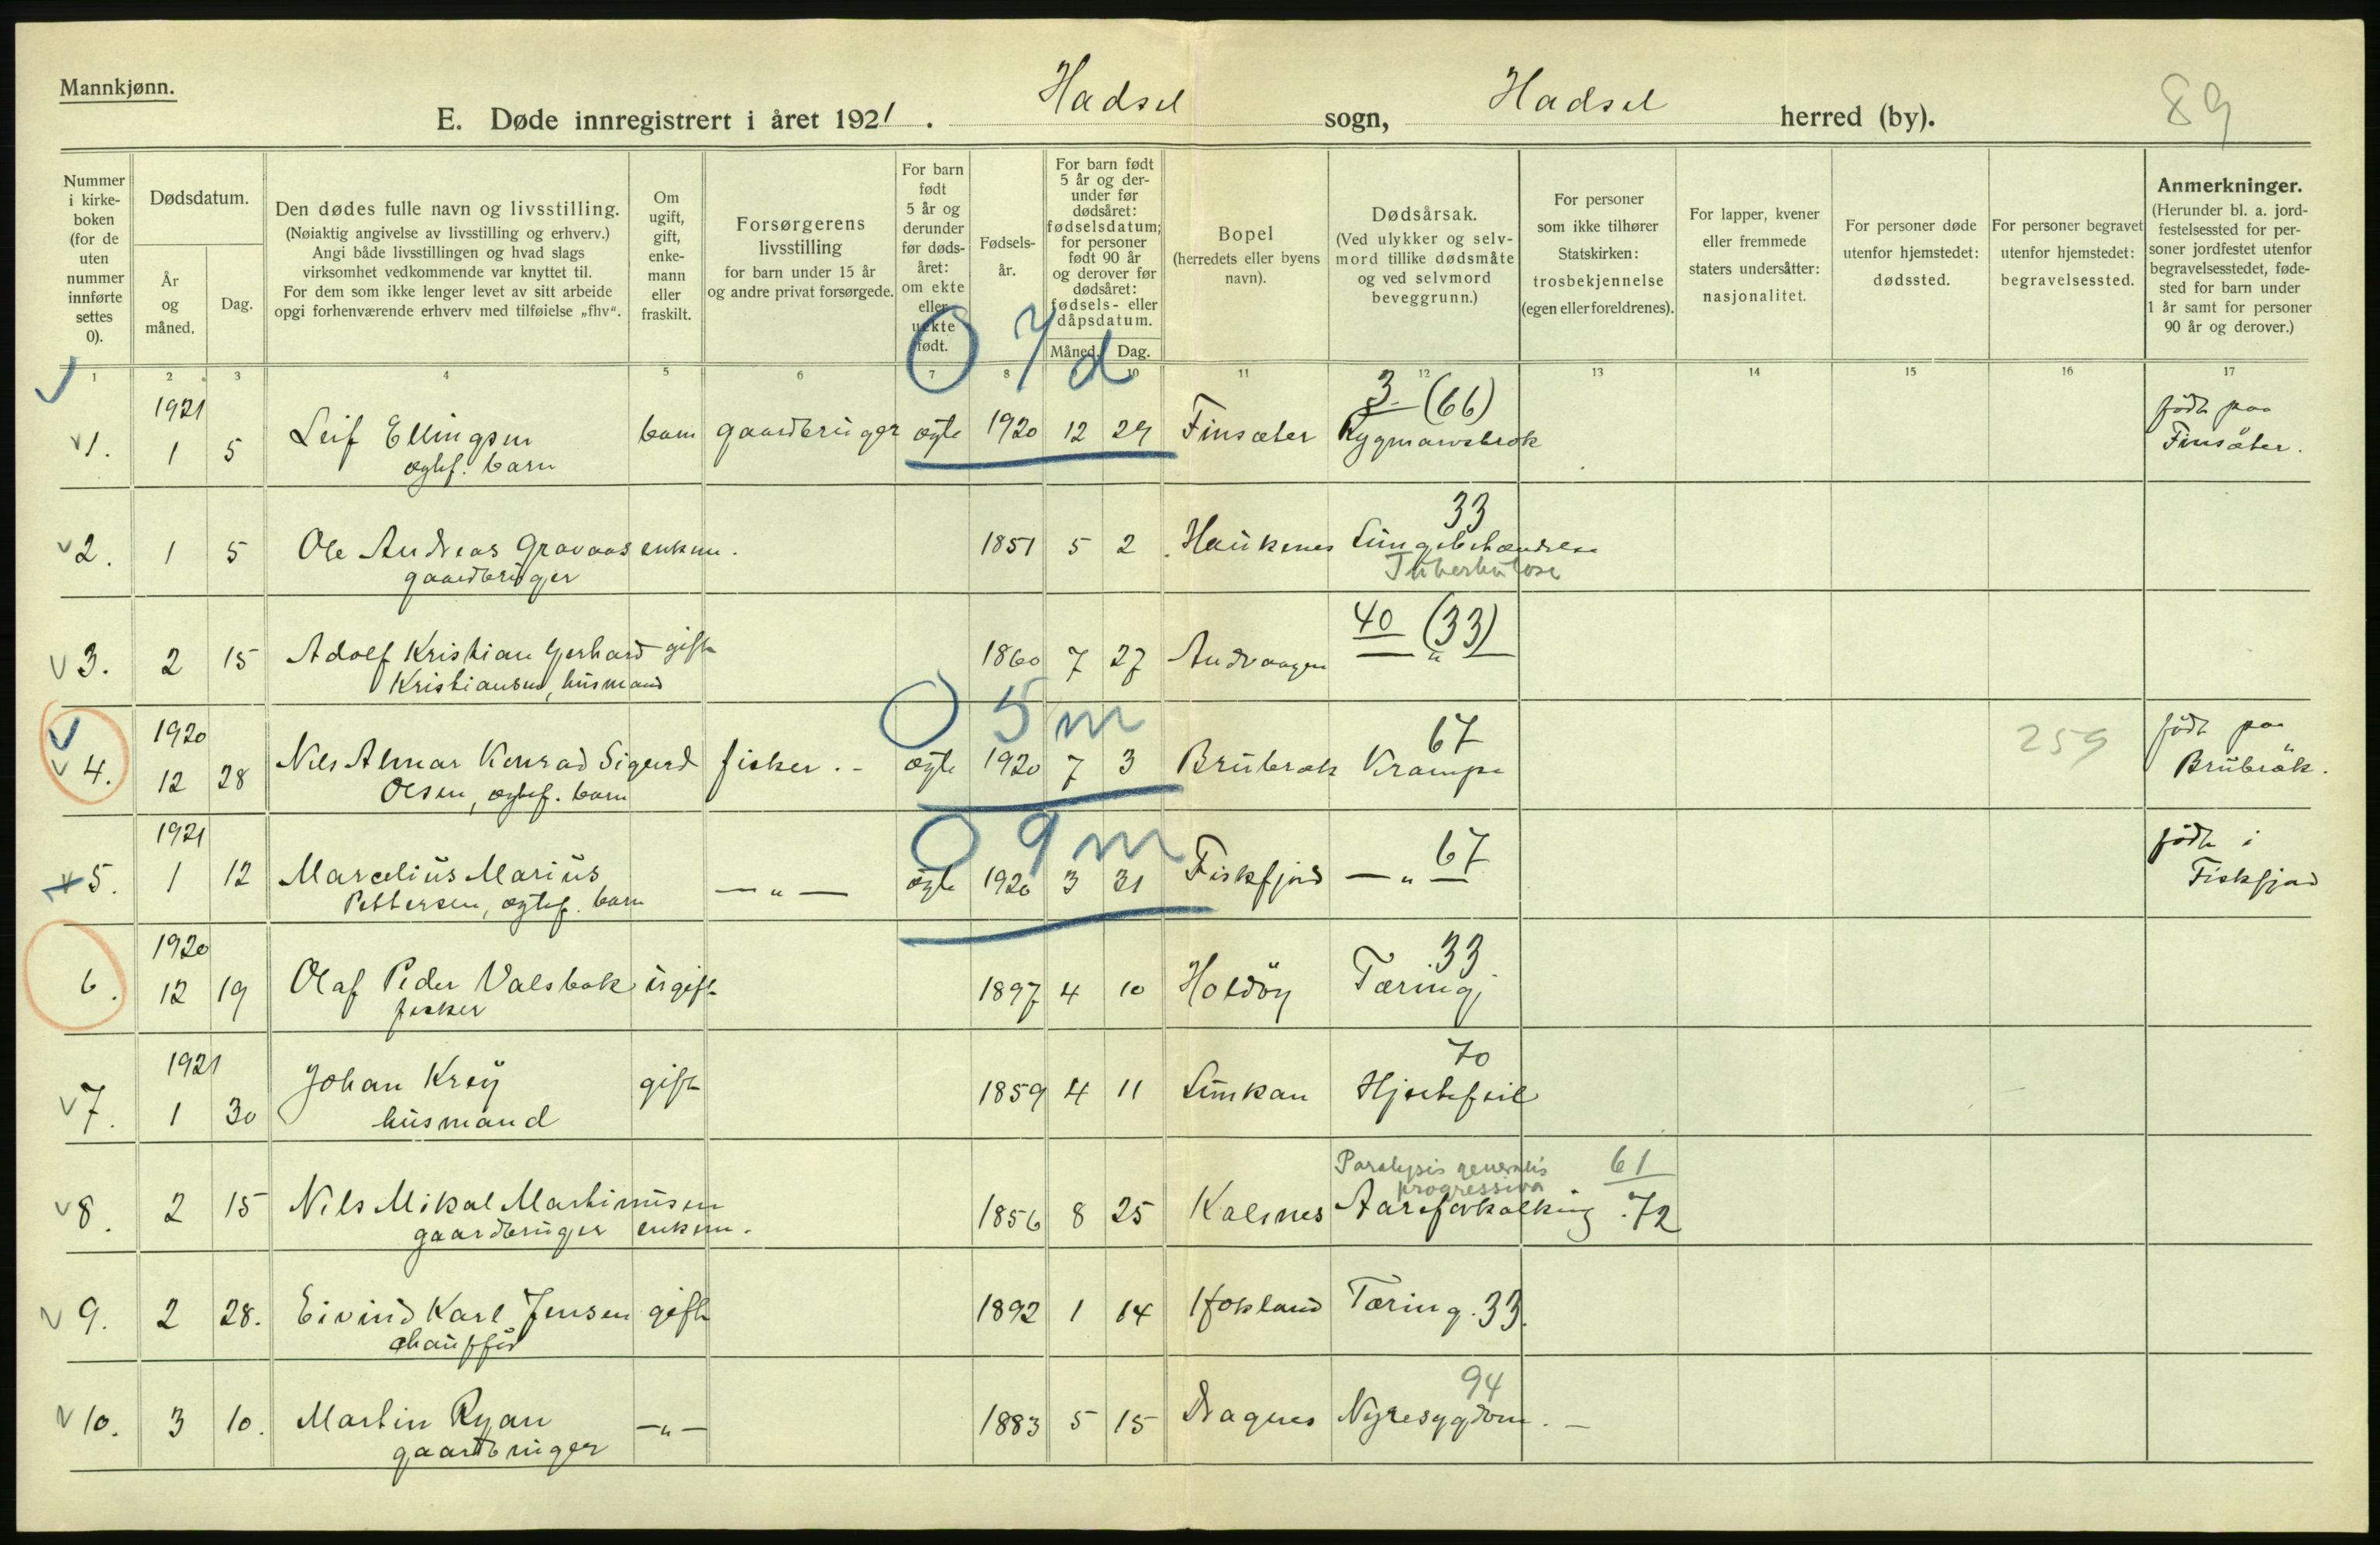 Mannkjønn.
E. Døde innregistrert i året 1921. Hadsel sogn, Hadsel herred (by).
89
Nummer i kirke-boken (for de uten nummer innførte settes 0).
Dødsdatum.
År og måned.
Dag.
Den dødes fulle navn og livsstilling.
(Nøiaktig angivelse av livsstilling og erhverv.)
Angi både livsstillingen og hvad slags
virksomhet vedkommende var knyttet til.
For dem som ikke lenger levet av sitt arbeide
opgi forhenværende erhverv med tilføielse „fhv“.
Om ugift, gift, enke-mann eller fraskilt.
Forsørgerens livsstilling
for barn under 15 år
og andre privat forsørgede.
For barn født 5 år og derunder før døds-året: om ekte eller uekte født.
Fødsels-år.
For barn født 5 år og der-under før dødsåret: fødselsdatum; for personer født 90 år og derover før dødsåret: fødsels- eller dåpsdatum.
Måned.
Dag.
Bopel
(herredets eller byens navn).
Dødsårsak.
(Ved ulykker og selv-mord tillike dødsmåte og ved selvmord beveggrunn.)
For personer som ikke tilhører Statskirken:
trosbekjennelse
(egen eller foreldrenes).
For lapper, kvener eller fremmede staters undersåtter:
nasjonalitet.
For personer døde utenfor hjemstedet:
dødssted.
For personer begravet utenfor hjemstedet:
begravelsessted.
Anmerkninger.
(Herunder bl. a. jord-festelsessted for per-soner jordfestet utenfor begravelsesstedet, føde-sted for barn under 1 år samt for personer 90 år og derover.)
1 2 3 4 5 6 7 8 10 11 12 13 14 15 16 17
7 d
1921 3 (66) født paa
1. 1 5 Leif Ellingsen barn gaardbruger ægte 1920 12 29 Finsæter Rygmarvsbrok Finsäter.
ægtef. barn
33
2. 1 5 Ole Andreas Gravaas enkem. 1851 5 2 Haukenes Lungebetændelse
gaardbruger Tuberkulose
40 (33)
3. 2 15 Adolf Kristian Gerhard gift 1860 7 27 Andvaagen — " —
Kristiansen, husmand
5 m
1920 67 født paa
4. 12 28 Nils Almar Konrad Sigurd fisker. - ægte 1920 7 3 Brubrok Krampe 259 Brubrök.
Olsen, ægtef. barn
9 m
1921 67 født i
5. 1 12 Marcelius Marius — " — ægte 1920 3 31 Fiskfjord — " — Fiskfjord
Pettersen, ægtef. barn
1920 33
6. 12 19 Olaf Peder Valsbok ugift 1897 4 10 Holdöy Tæring.
fisker
1921 70
7. 1 30 Johan Krey gift 1859 4 11 Hjertefeil
husmand
Paralysis generalis 61
progressiva
8. 2 15 Nils Mikal Martinusen 1856 8 25 Kalsnes Aareforkalking .72
gaardbruger enkem.
9. 2 28. Eivind Karl Jensen gift 1892 1 14 Tæring. 33.
chauffør
94
10. 3 10. Martin Ryan — " — 1883 5 15 Dragnes Nyresygdom. —
gaardbruger